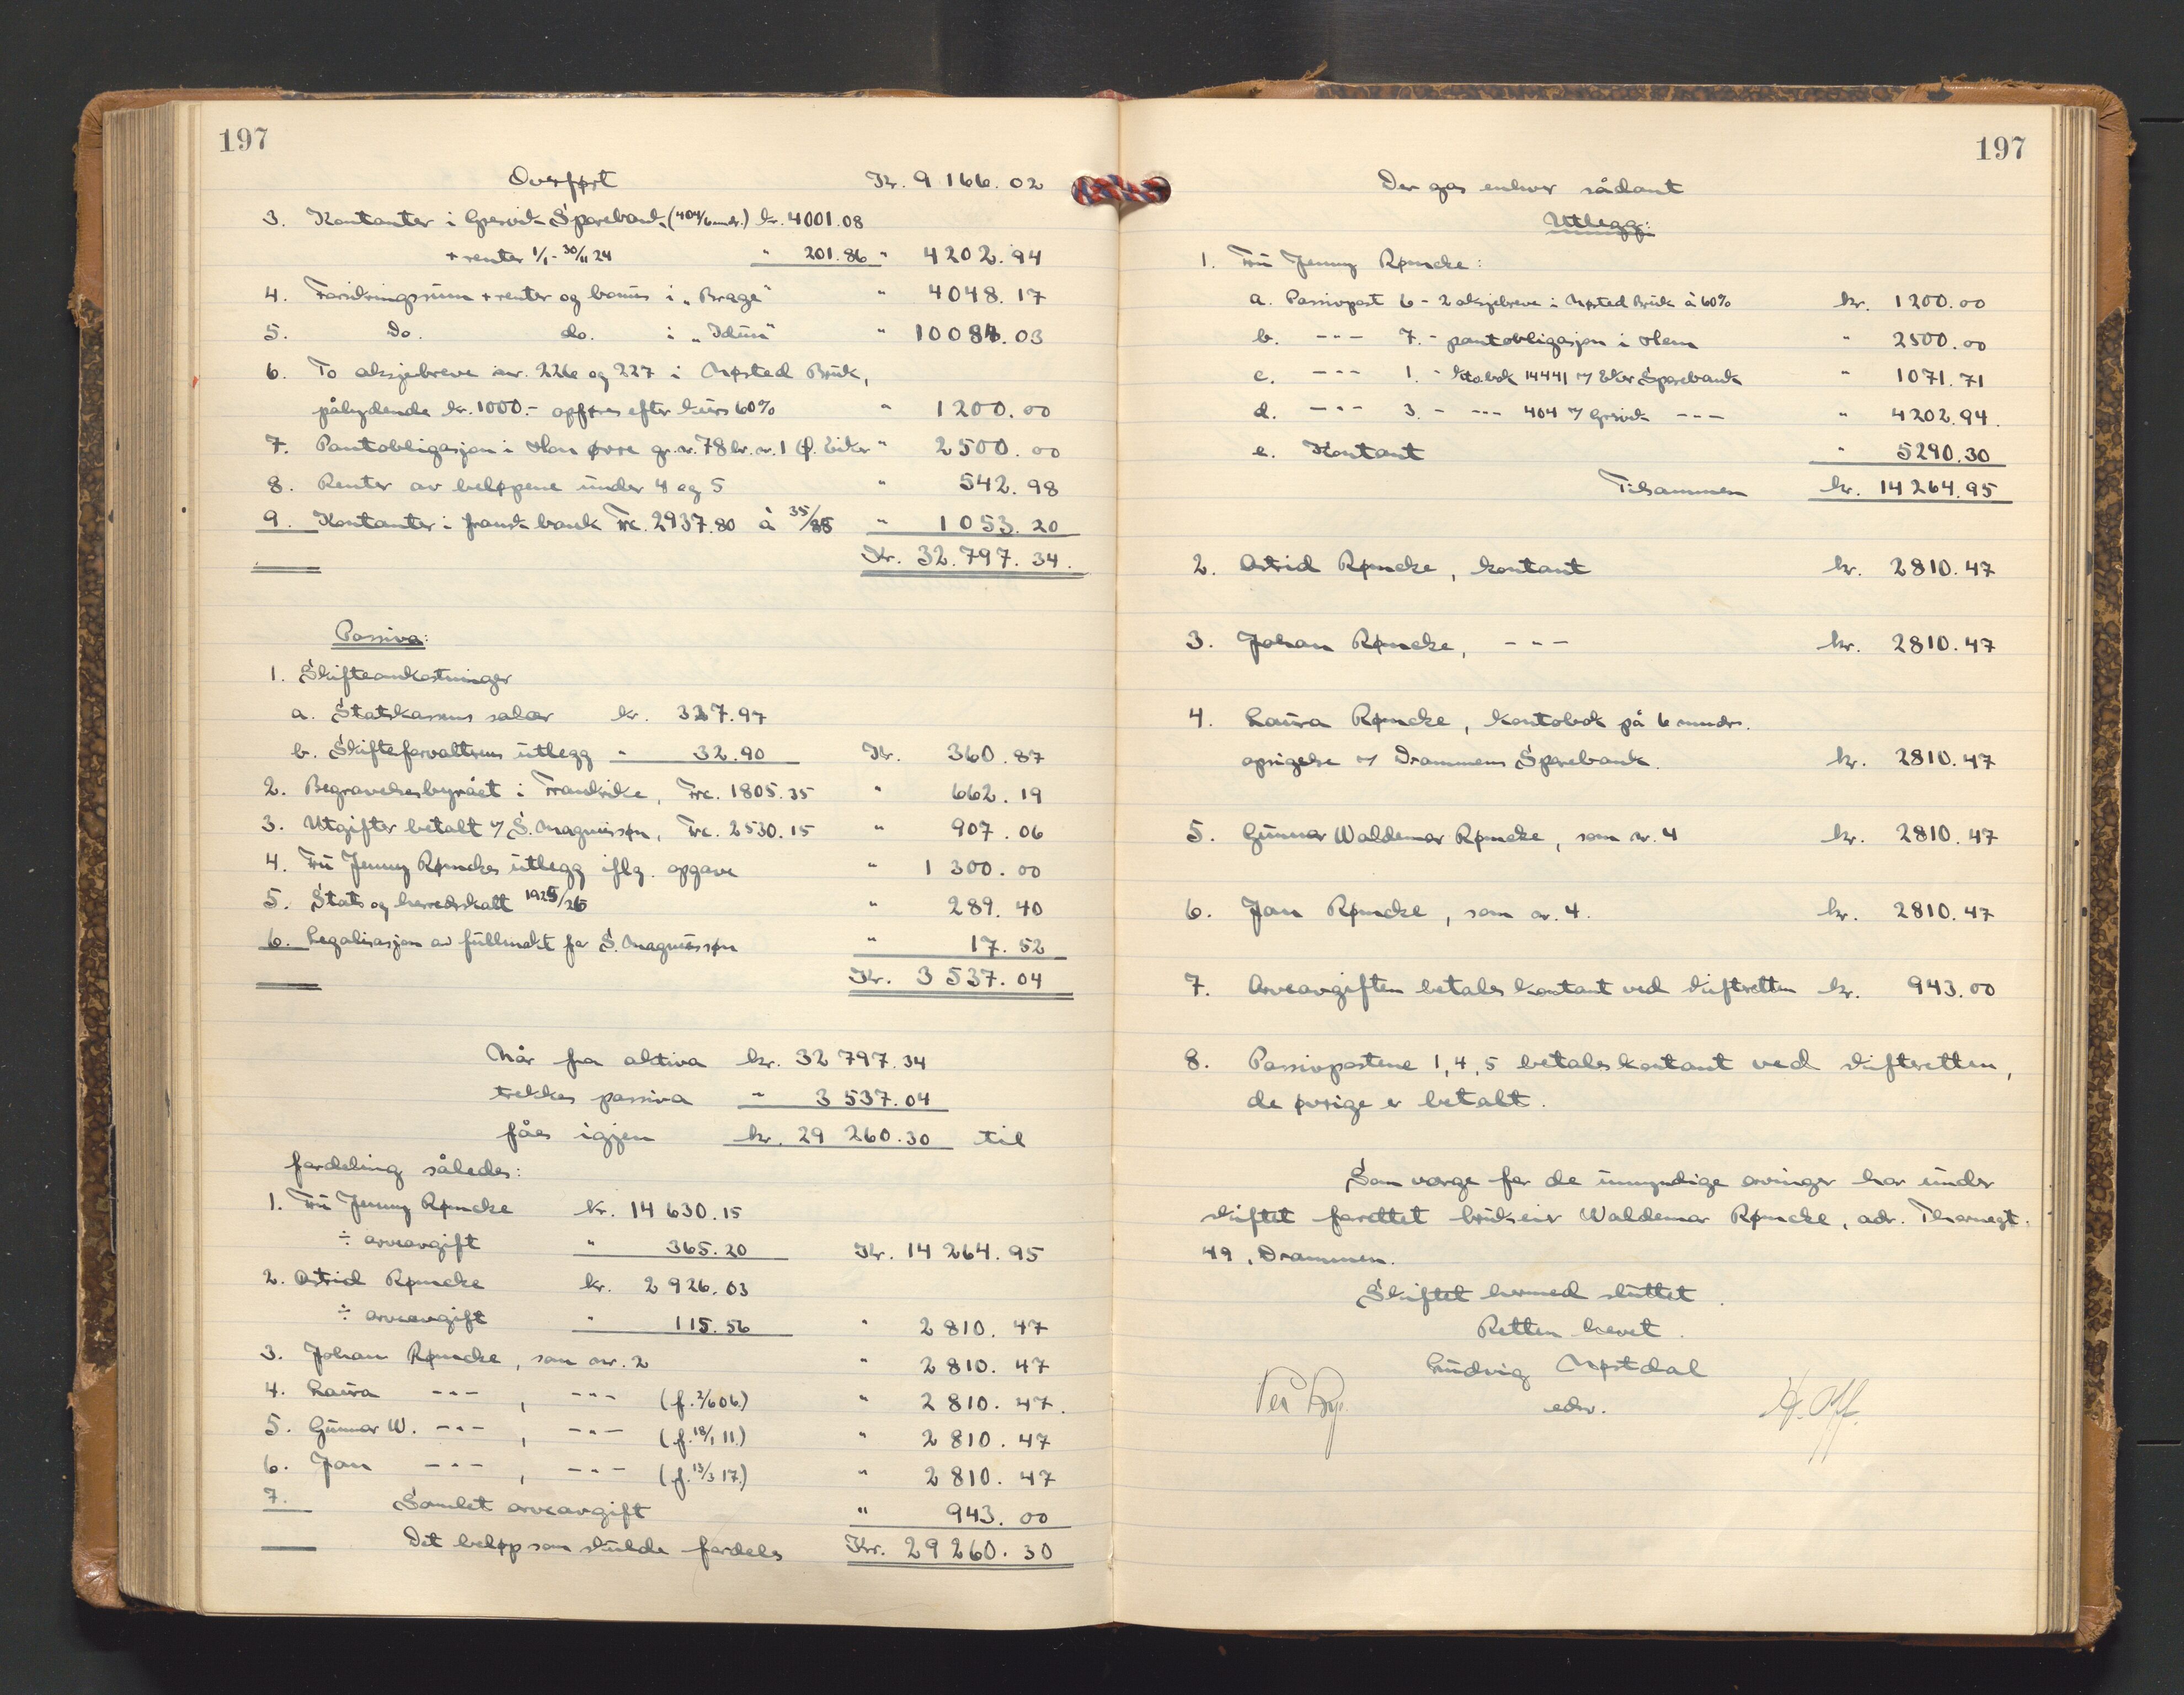 197
Overført Kr. 9 166.02
3. Kontanter i Gresvik Sparebank (404/6 mdr.) kr. 4001.08
+ renter 1/1 - 30/11 24 " 201.86 " 4202.94
4. Forsikringssum + renter og bonus i „Brage" " 4048.17
5. Do. do. i „Idun" " 10084.03
6. To aksjebreve nr. 226 og 227 i Mjøsted Bruk,
pålydende kr. 1000.- opføres efter kurs 60% " 1200.00
7. Pantobligasjon i Hon øvre gr. nr. 78 br. nr. 1 Ø. Eiker " 2500.00
8. Renter av beløpene under 4 og 5 " 542.98
9. Kontanter i fransk bank Frc. 2937.80 à 35/85 " 1053.20
Kr. 32.797.34.
Passiva:
1. Skifteomkostninger
a. Statskassens salær kr. 327.97
b. Skifteforvalterens utlegg " 32.90 Kr. 360.87
2. Begravelsesbyrået i Frankrike, Frc. 1805.35 " 662.19
3. Utgifter betalt v/ S. Magnussøn, Frc. 2530.15 " 907.06
4. Fru Jenny Rømckes utlegg iflg. opgave " 1300.00
5. Stats og herredsskatt 1925/26 " 289.40
6. Legalisasjon av fullmakt for S. Magnussøn " 17.52
Kr. 3537.04
Når fra aktiva kr. 32 797.34
trekkes passiva " 3 537.04
fåes igjen kr. 29 260.30 til
fordeling således:
1. Fru Jenny Rømcke kr. 14 630.15
÷ arveavgift " 365.20 Kr. 14 264.95
2. Astrid Rømcke kr. 2 926.03
÷ arveavgift " 115.56 " 2 810.47
3. Johan Rømcke, som nr. 2 " 2 810.47
4. Laura ---, --- (f. 2/6 06.) " 2 810.47.
5. Gunnar W. ---, --- (f. 18/1 11.) " 2 810.47
6. Jan ---, --- (f. 13/3 17.) " 2 810.47
7. Samlet arveavgift " 943.00
Det beløp som skulde fordeles Kr. 29 260.30
197
Der gas enhver sådant
Utlegg:
1. Fru Jenny Rømcke:
a. Passivpost 6 - 2 aksjebreve i Mjøsted Bruk à 60% kr. 1200.00
b. --- 7. - pantobligasjon i Hon " 2500.00
c. --- 1. - Ktobok 14441 v/ Eiker Sparebank " 1071.71
d. --- 3. - --- 404 v/ Gresvik --- " 4202.94.
e. Kontant " 5290.30
Tilsammen kr. 14264.95
2. Astrid Rømcke, kontant kr. 2810.47
3. Johan Rømcke, --- kr. 2810.47
4. Laura Rømcke, kontobok på 6 mndrs.
opsigelse v/ Drammens Sparebank. kr. 2810.47
5. Gunnar Waldemar Rømcke, som nr. 4 kr. 2810.47
6. Jan Rømcke, som nr. 4. kr. 2810.47
7. Arveavgiften betales kontant ved skifteretten kr. 943.00
8. Passivpostene 1, 4, 5 betales kontant ved skifteretten,
de øvrige er betalt.
Som verge for de umyndige arvinger har under
skiftet forettet brukseier Waldemar Rømcke, adr. Thornegt.
49, Drammen.
Skiftet hermed sluttet.
Retten hevet.
Ludvig Mjøstdal
edsv.
Per Bry. H. Off.